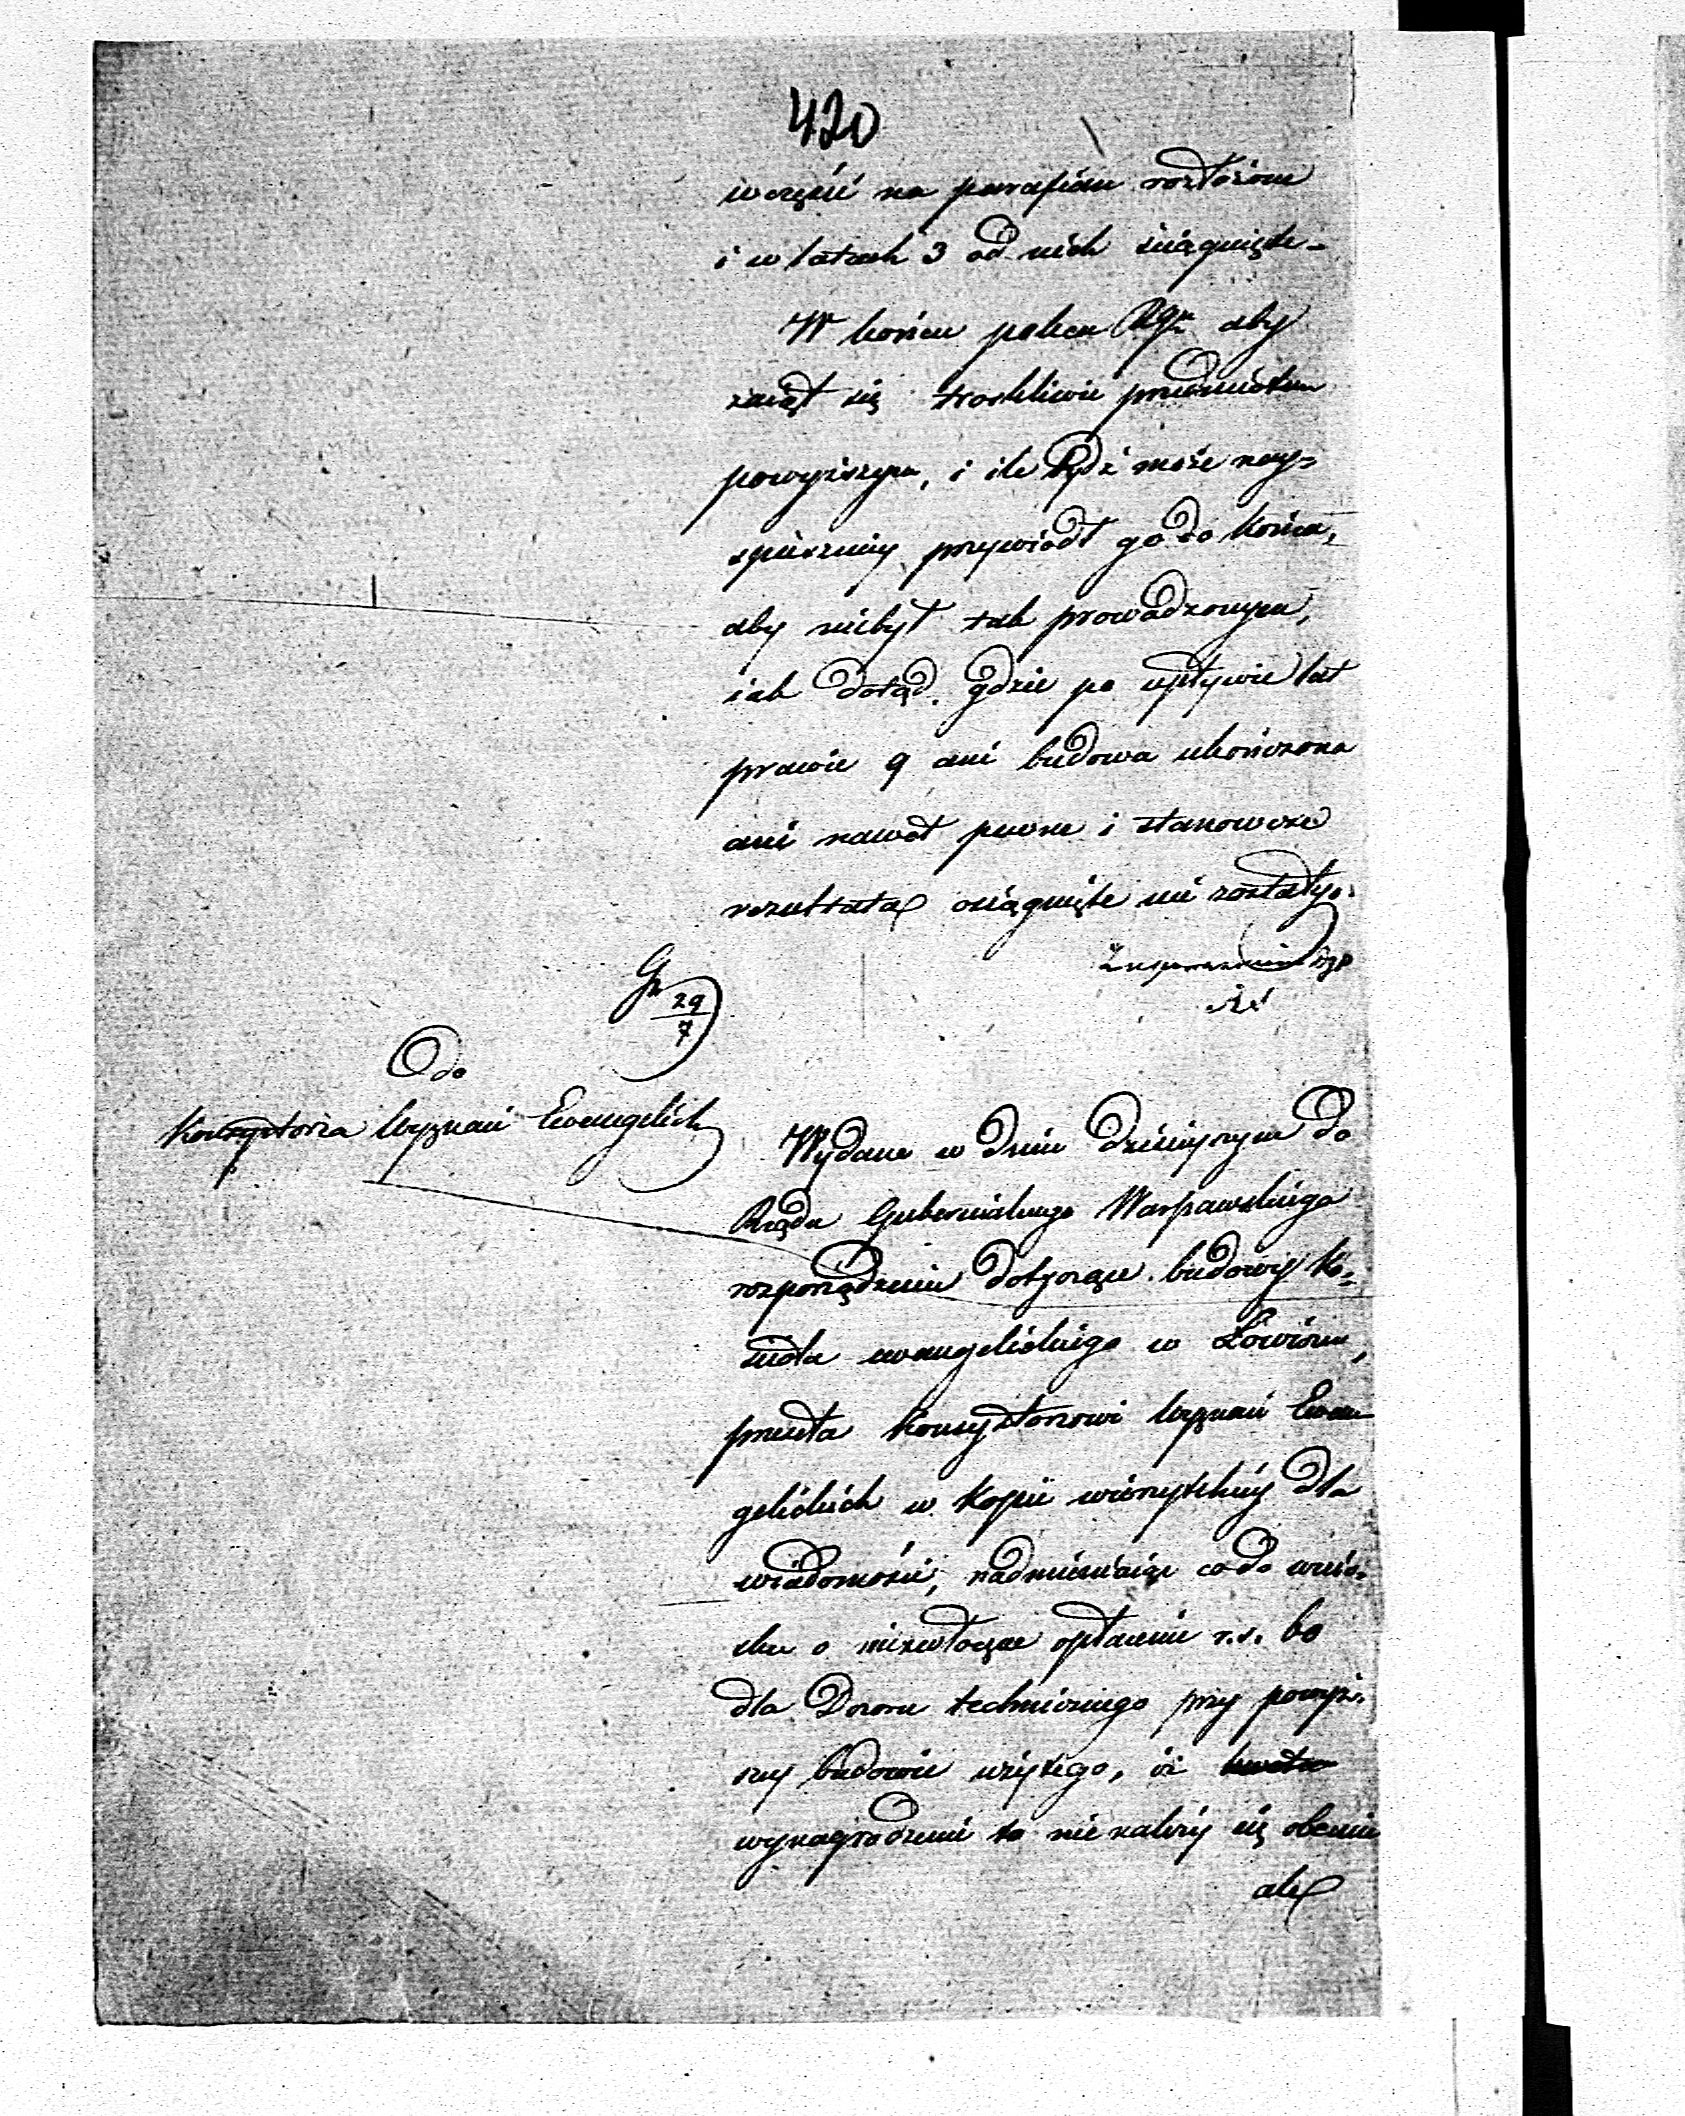 420
w część na parafian rozłożone
i w latach 3 od nich ściągnięte.
W końcu poleca Rgu aby
zaiął się troskliwie przedmiotem
powyższym, i ile bydź może nay=
spieszniey przywiódł go do końca,
aby niebył tak prowadzonym,
iak dotąd, gdzie po upływie lat
prawie 9 ani budowa ukończona
ani nawet pewne i stanowcze
rezultata osiągnięte nie zostały.
G 29/7
do
Konsystorza Wyznań Ewangelick
Wydane w dniu dzisieyszym do
Rządu Gubernialnego Warszawskiego
rozporządzenie dotyczące budowy Ko=
scioła ewangelickiego w Łowiczu,
przesyła Konsystorzowi Wyznań Ewan
gelickich w kopii wierzytelnéy dla
wiadomości, nadmieniaiąc co do wnio=
sku o niezwłoczne opłacenie r.s. 60
dla Dozoru technicznego przy powyż=
szey budowie użytego, iż
wynagrodzenie to nie należy się obecnie
ale